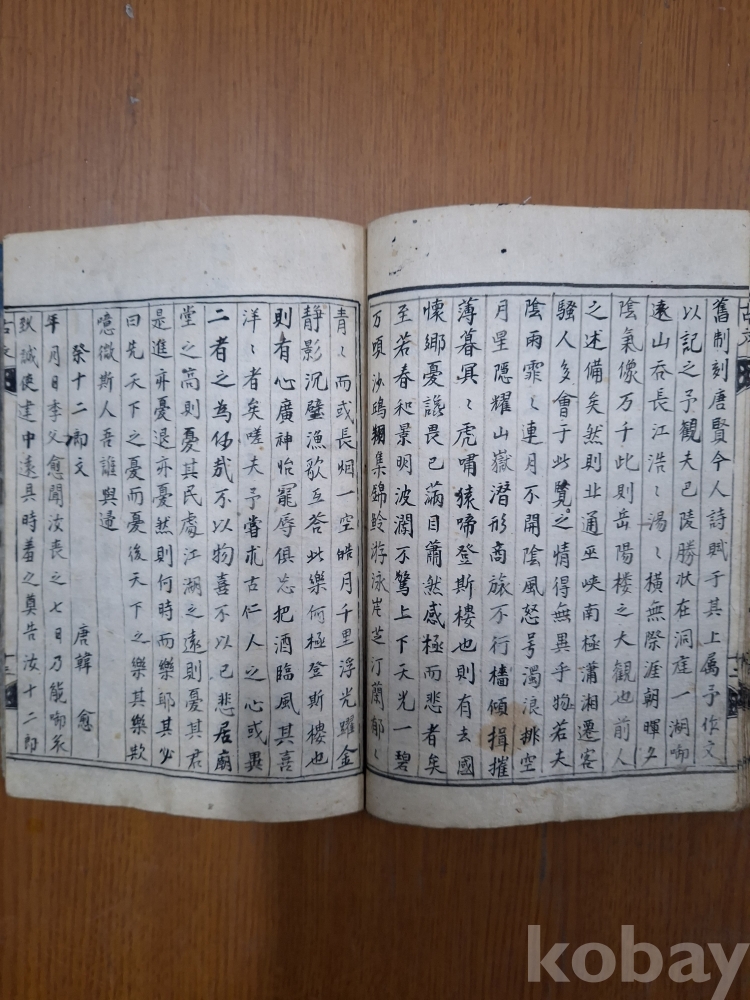 舊制刻唐賢今人詩賦于其上属予作文
以記之予觀夫巴陵勝狀在洞庭一湖啣
遠山吞長江浩〻湯〻橫無際涯朝暉夕
陰氣像万千此則岳陽楼之大觀也前人
之述備矣然則北通巫峽南極瀟湘遷客
騷人多會于此覽之情得無異乎物若夫
陰雨霏〻連月不開陰風怒号濁浪排空
月星隱耀山嶽潛形商旅不行檣傾揖摧
薄暮冥〻虎嘯猿啼登斯樓也則有去國
懷鄉憂讒畏已滿目蕭然感極而悲者矣
至若春和景明波瀾不驚上下天光一碧
万頃沙鷗翔集錦鈴游泳岸芝汀蘭郁〻
青〻而或長烟一空皓月千里浮光耀金
静影沉璧漁歌互答此樂何極登斯樓也
則有心廣神怡寵辱俱忘把酒臨風其喜
洋〻者矣嗟夫予嘗求古仁人之心或異
二者之為何哉不以物喜不以己悲居廟
堂之高則憂其民處江湖之遠則憂其君
是進亦憂退亦憂然則何時而樂耶其必
曰先天下之憂而憂後天下之樂其樂欤
噫微斯人吾誰與歸
祭十二郎文 唐韓愈
年月日季父愈聞汝喪之七日乃能啣哀
致誠使建中遠具時羞之奠告汝十二郎
古文
古文
kobay